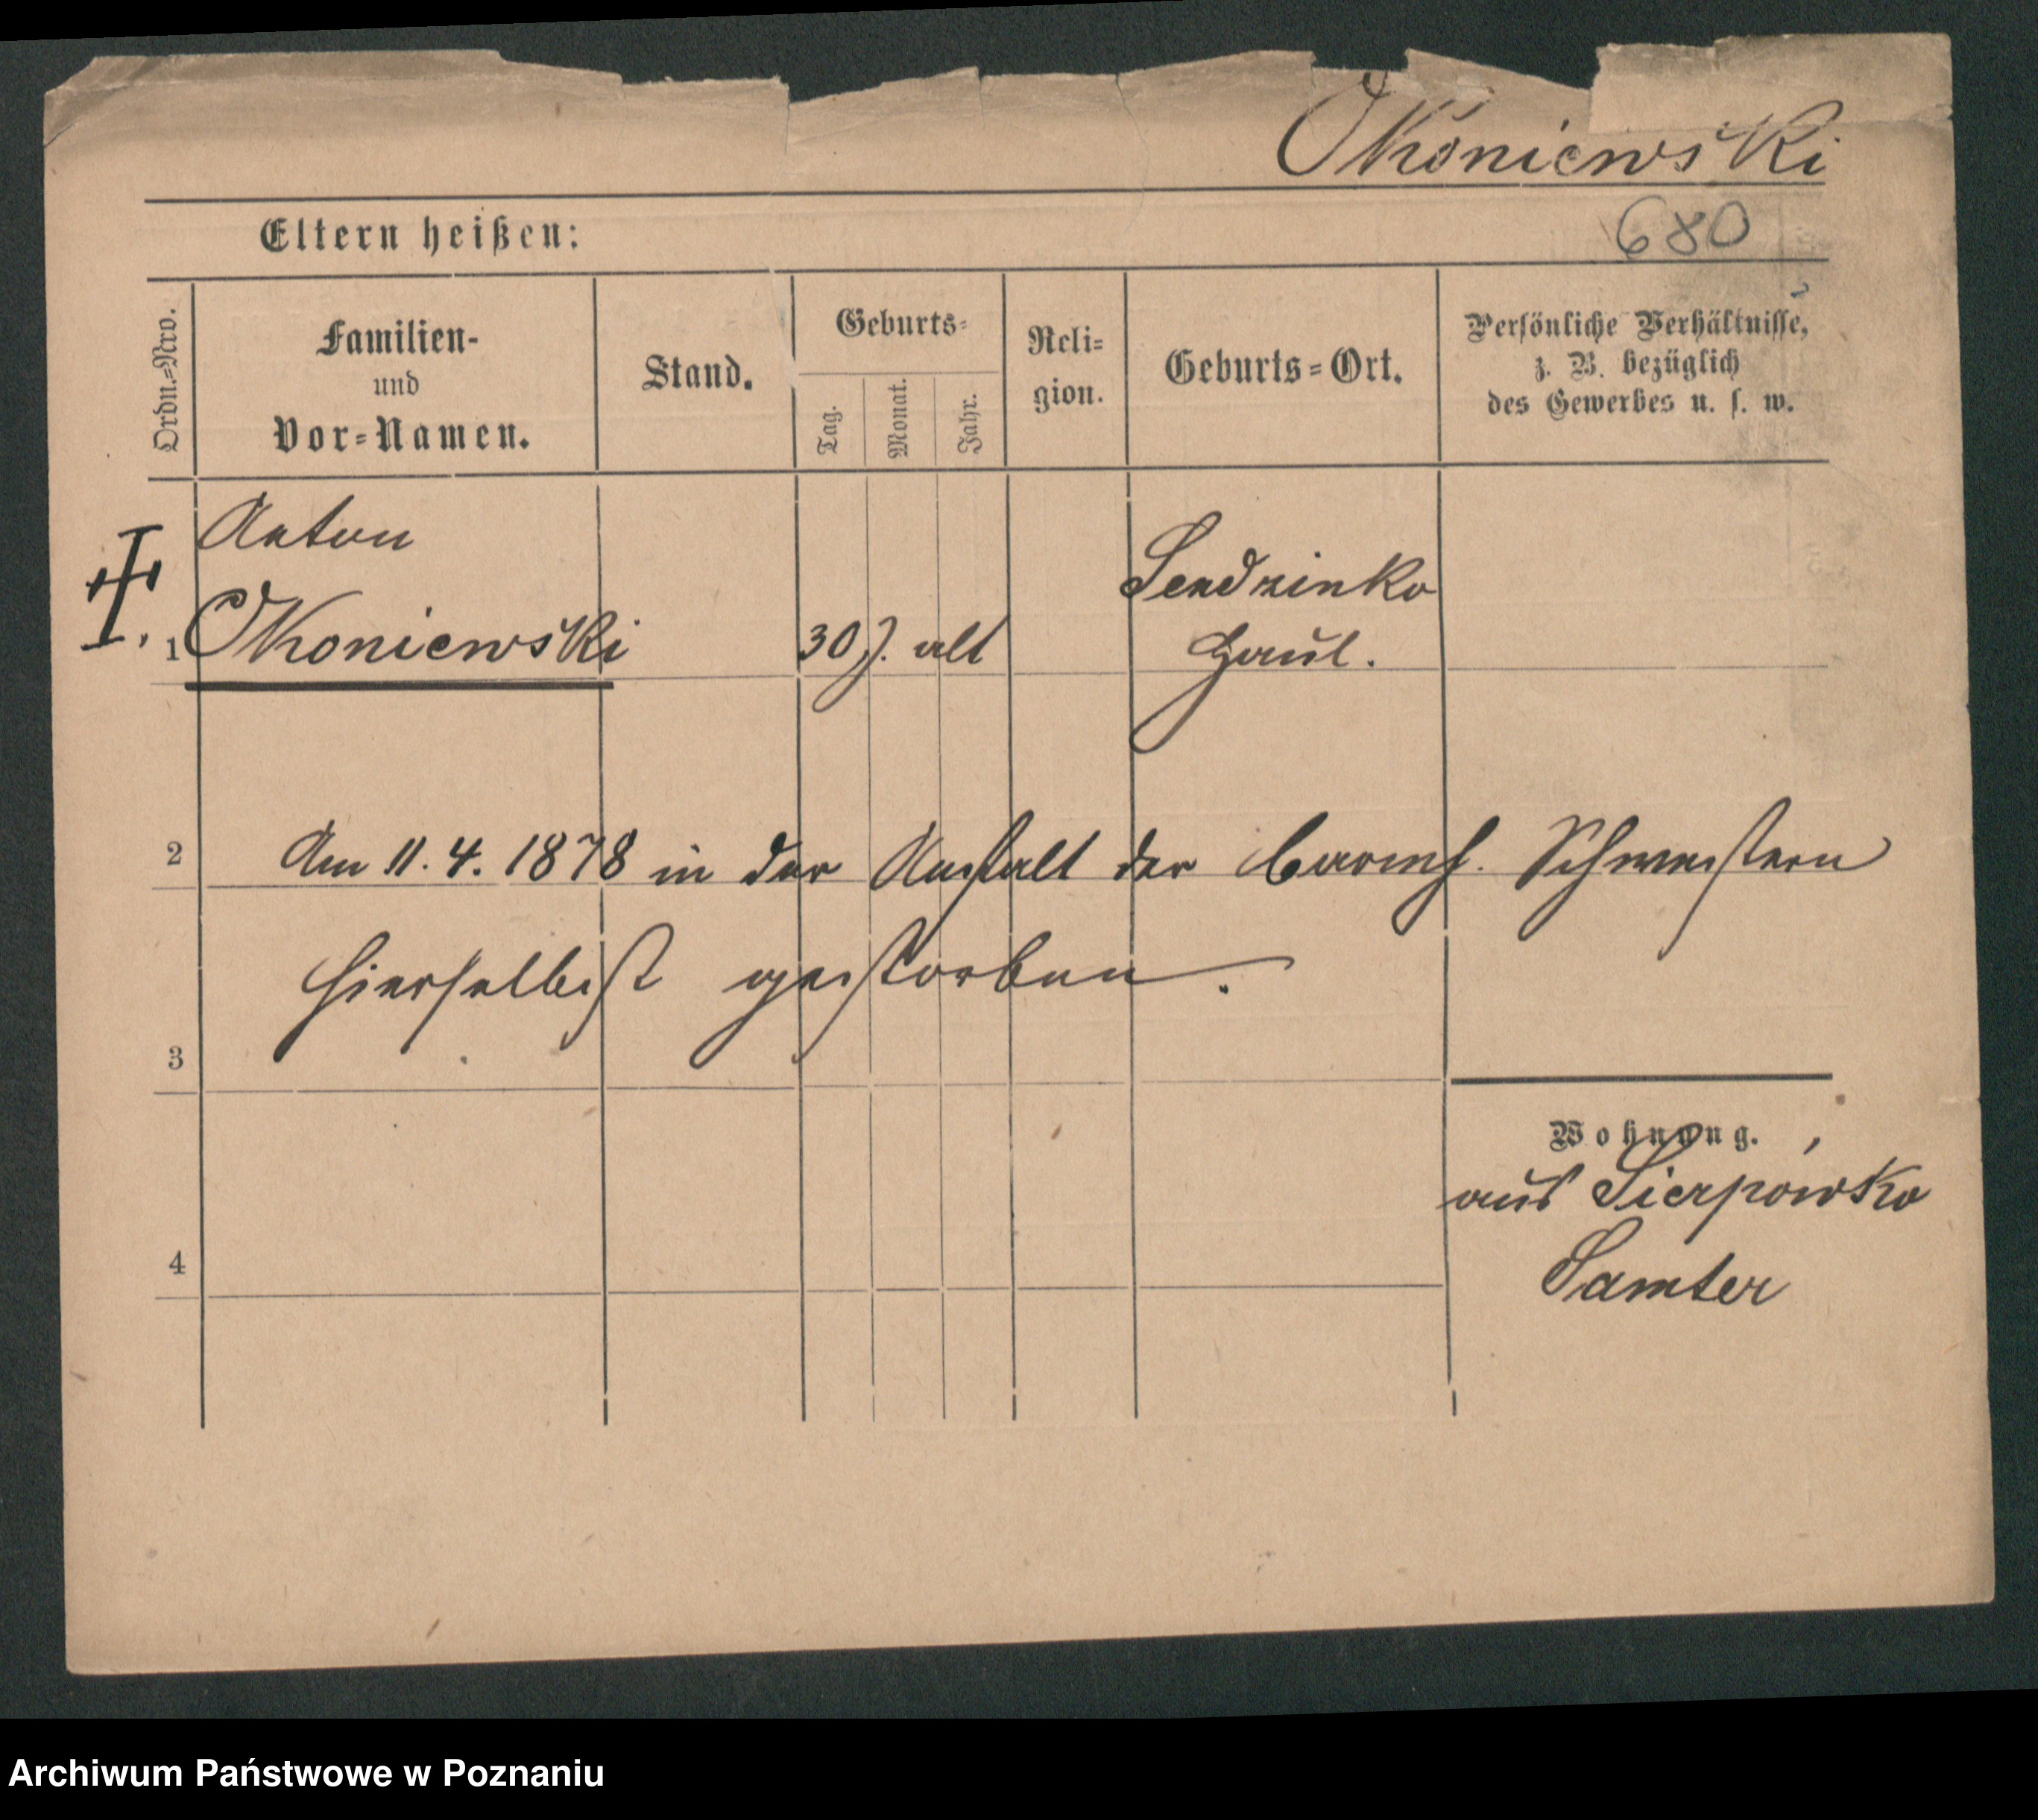 Okoniewski
Eltern heißen:
680
Ordn.=Nro.
Familien-
und
Vor=Namen.
Stand.
Geburts=
Tag.
Monat.
Jahr.
Reli=
gion.
Geburts=Ort.
Persönliche Verhältnisse,
z. B. bezüglich
des Gewerbes u. s. w.
Anton
1 Okoniewski
30 J. alt
Sendzinko
Haul.
2
Am 11. 4. 1878 in der Anstalt der barmh. Schwestern
hierselbst gestorben.
3
Wohnung.
aus Sierpówko
Samter
4
Archiwum Państwowe w Poznaniu